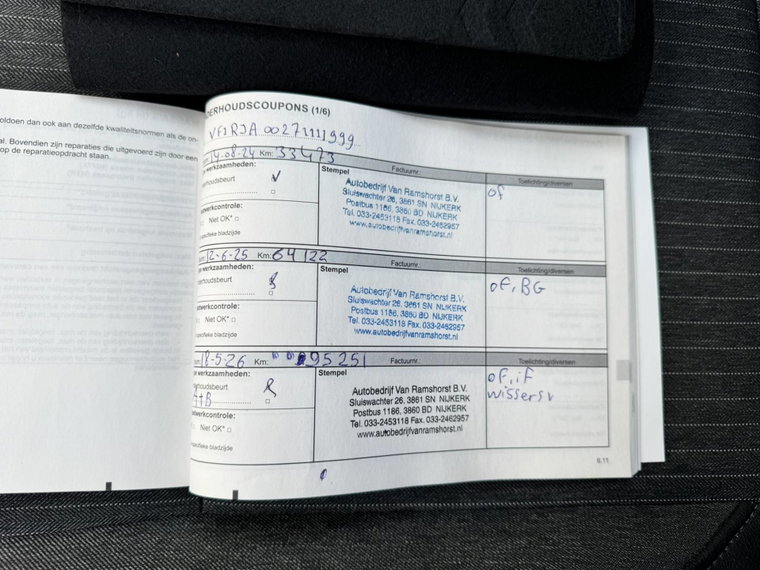 oldoen dan ook aan dezelfde kwaliteitsnormen als de on-
al. Bovendien zijn reparaties die uitgevoerd zijn door een
op de reparatieopdracht staan.
ERHOUDSCOUPONS (1/6)
VF1RJA00271111999
14-08-24 Km: 33473 Factuurnr.: Toelichting/diversen
werkzaamheden:
erhoudsbeurt
werkcontrole:
Niet OK*
specifieke bladzijde
Stempel
Autobedrijf Van Ramshorst B.V.
Sluiswachter 26, 3861 SN NIJKERK
Postbus 1186, 3860 BD NIJKERK
Tel. 033-2453118 Fax. 033-2462957
www.autobedrijfvanramshorst.nl
of
12-6-25 Km: 64122 Factuurnr.: Toelichting/diversen
werkzaamheden:
erhoudsbeurt
werkcontrole:
Niet OK*
specifieke bladzijde
Stempel
Autobedrijf Van Ramshorst B.V.
Sluiswachter 26, 3861 SN NIJKERK
Postbus 1186, 3860 BD NIJKERK
Tel. 033-2453118 Fax. 033-2462957
www.autobedrijfvanramshorst.nl
of, BG
18-5-26 Km: 95251 Factuurnr.: Toelichting/diversen
werkzaamheden:
erhoudsbeurt
A+B
werkcontrole:
Niet OK*
specifieke bladzijde
Stempel
Autobedrijf Van Ramshorst B.V.
Sluiswachter 26, 3861 SN NIJKERK
Postbus 1186, 3860 BD NIJKERK
Tel. 033-2453118 Fax. 033-2462957
www.autobedrijfvanramshorst.nl
of, if
wissers v
6.11